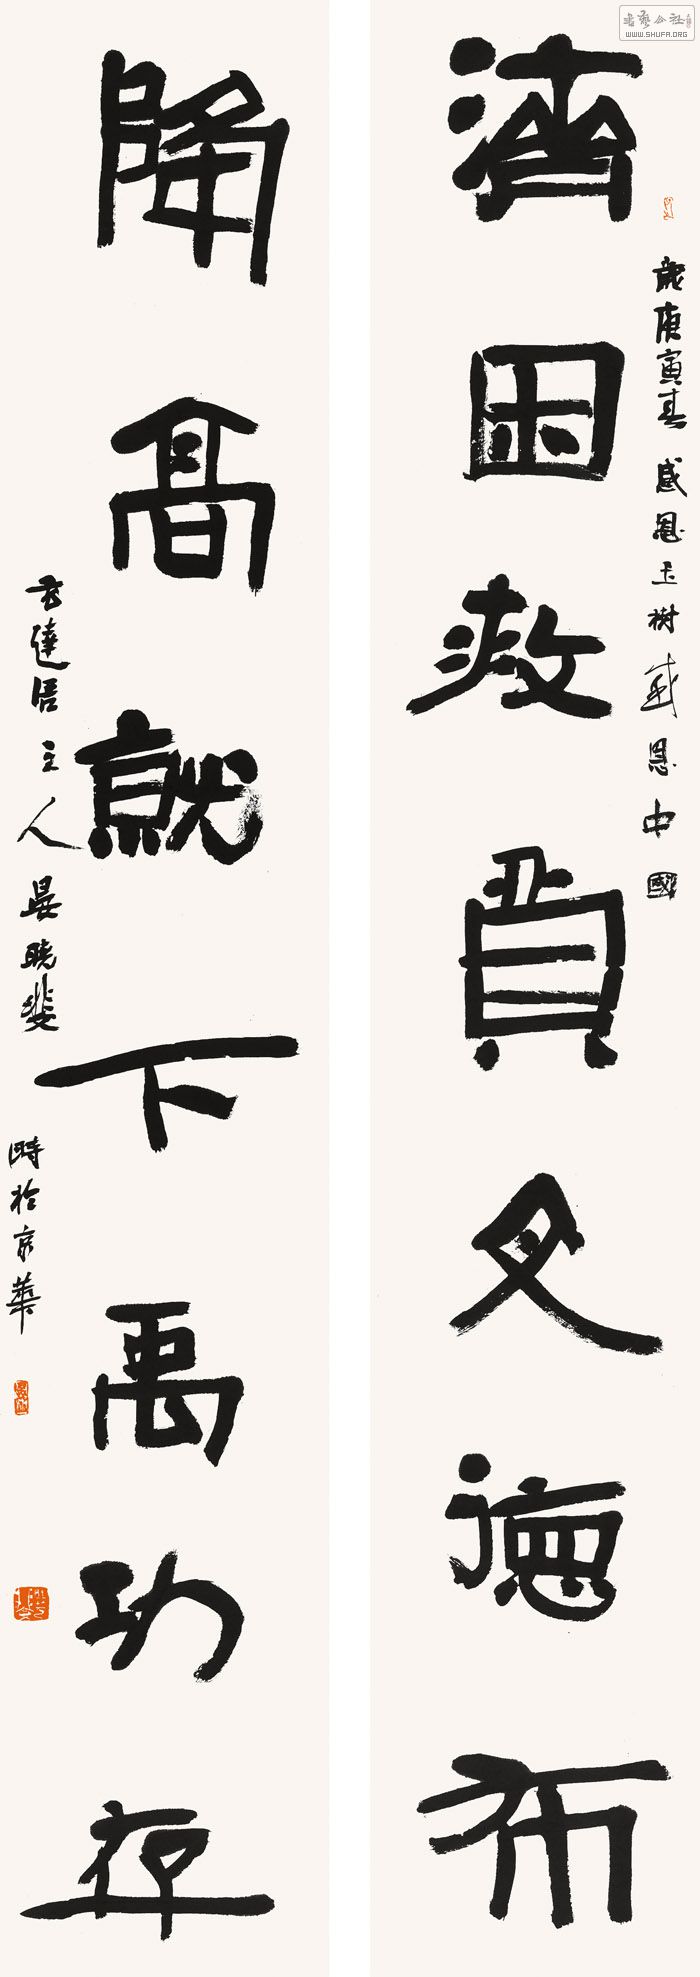 濟困救貧文德布
歲庚寅春感恩玉樹感恩中國
降高就下禹功存
達居主人晏曉斐
時於京華
書藝公社
WWW.SHUFA.ORG